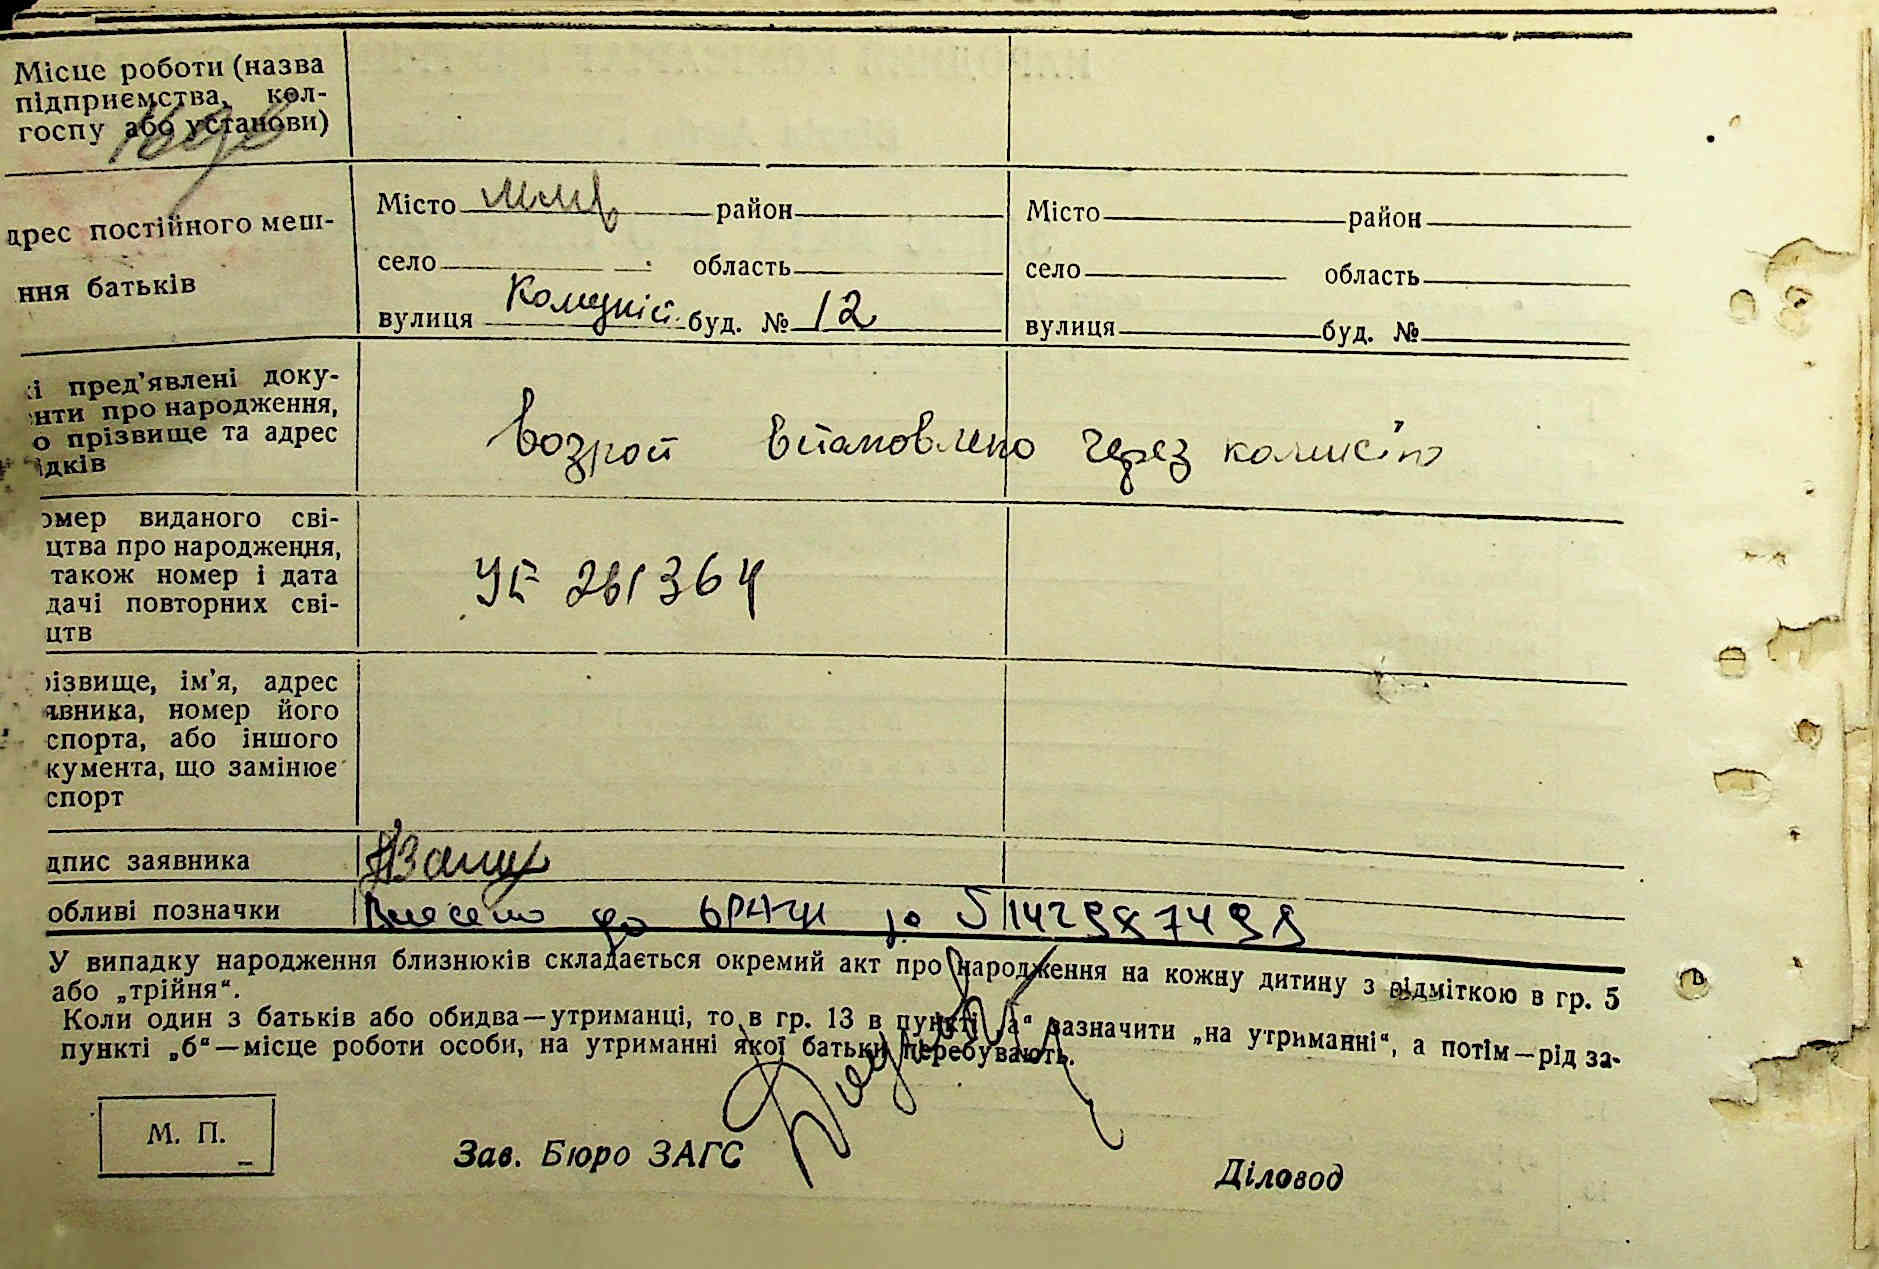 Місце роботи (назва
підприємства, кол-
госпу або установи)
дрес постійного меш-
ння батьків
Місто район
село область
вулиця буд. № 12
Місто район
село область
вулиця буд. №
і пред'явлені доку-
нти про народження,
о прізвище та адрес
ідків
возраст встановлено через комисію
омер виданого сві-
цтва про народження,
також номер і дата
дачі повторних сві-
цтв
УЕ 261364
різвище, ім'я, адрес
явника, номер його
спорта, або іншого
кумента, що замінює
спорт
дпис заявника
обливі позначки
Внесено до
У випадку народження близнюків складається окремий акт про народження на кожну дитину з відміткою в гр. 5
або „трійня“.
Коли один з батьків або обидва—утриманці, то в гр. 13 в пункті „а“ зазначити „на утриманні“, а потім—рід за-
пункті „б“—місце роботи особи, на утриманні якої батьки перебувають.
М. П.
Зав. Бюро ЗАГС
Діловод